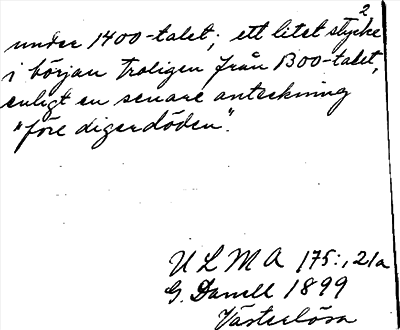 2
under 1400-talet; ett litet stycke
i början troligen från 1300-talet,
enligt en senare anteckning
"före digerdöden".
ULMA 175:,21a
G. Danell 1899
Västerlösa